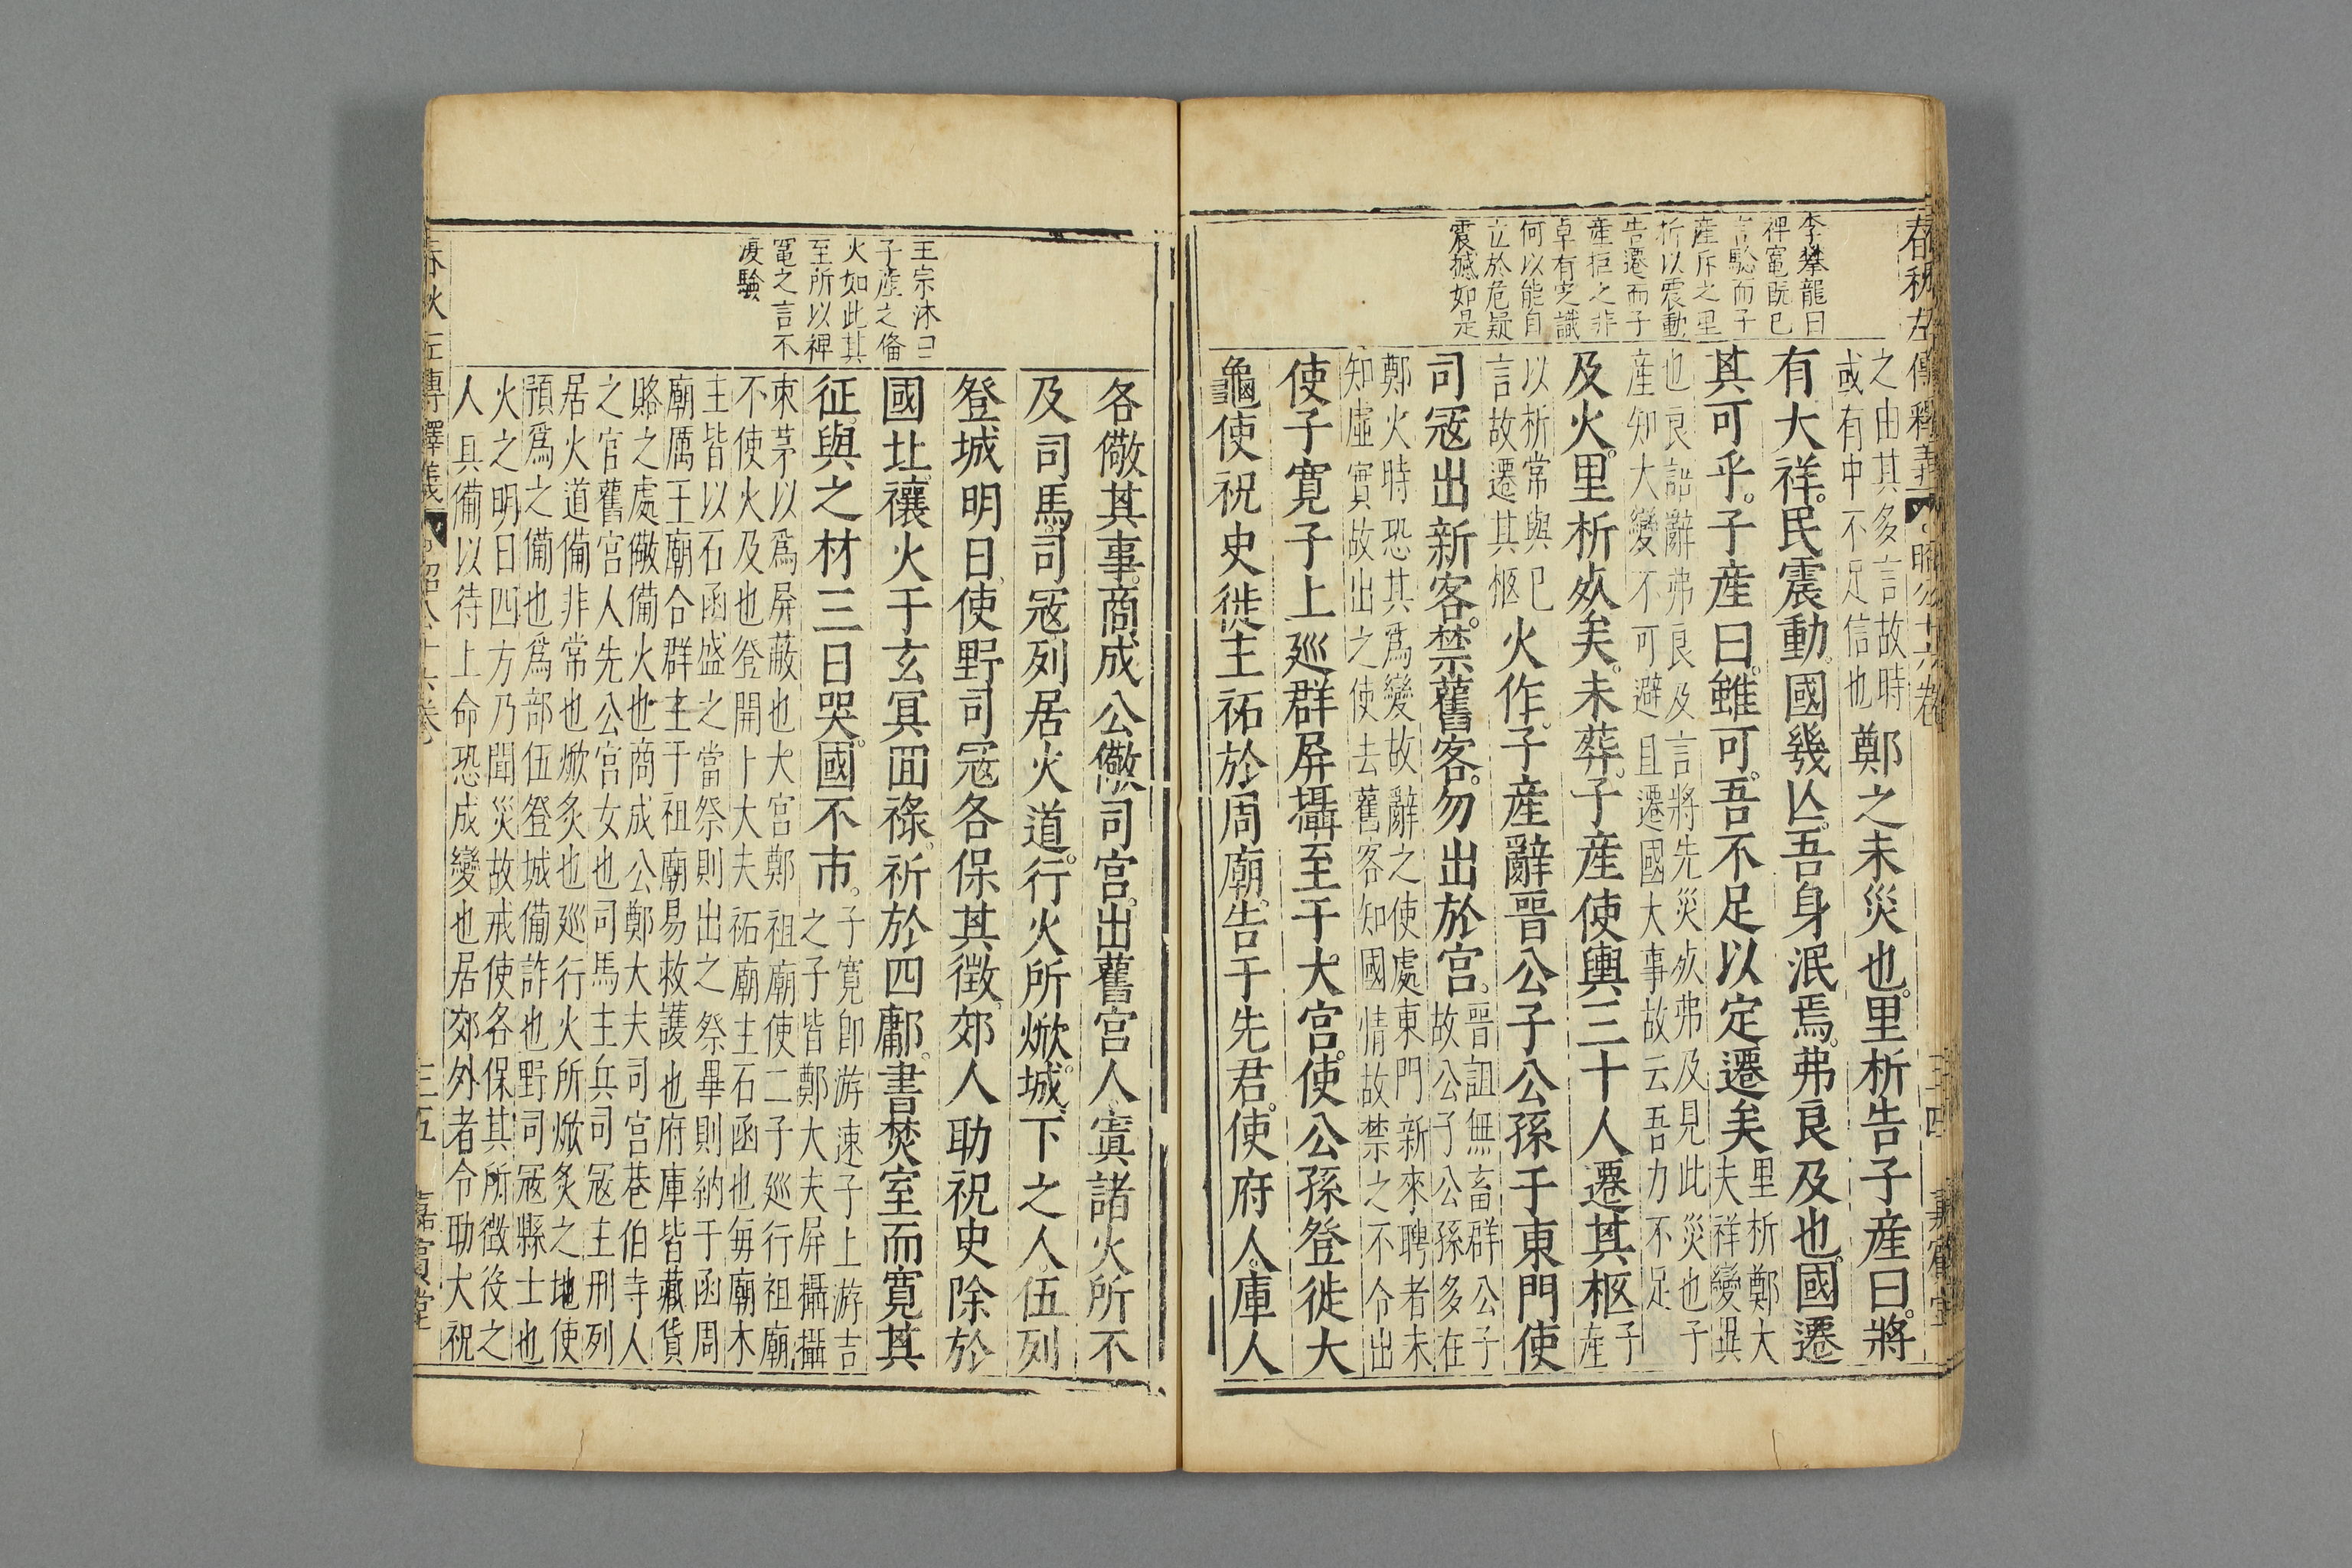 春秋左傳釋義 昭公十六卷 三四 嘉賓堂
李攀龍曰
裨竈既已
言驗而子
產斥之里
析以震動
告遷而子
產拒之非
卓有定識
何以能自
立於危疑
震撼如是
之由其多言故時
或有中不足信也
鄭之未災也里析告子產曰將
有大祥民震動國幾亾吾身泯焉弗良及也國遷
其可乎子產曰雖可吾不足以定遷矣
里析鄭大
夫祥變異
也良語辭弗良及言將先災歿弗及見此災也子
產知大變不可避且遷國大事故云吾力不足
及火里析歿矣未葬子產使輿三十人遷其柩
子
產
以析常與已
言故遷其柩
火作子產辭晉公子公孫于東門使
司寇出新客禁舊客勿出於宮
晉詛無畜群公子
故公子公孫多在
鄭火時恐其爲變故辭之使處東門新來聘者未
知虛實故出之使去舊客知國情故禁之不令出
使子寬子上巡群屏攝至于大宮使公孫登徙大
龜使祝史徙主祏於周廟告于先君使府人庫人
各儆其事商成公儆司宮出舊宮人寘諸火所不
及司馬司寇列居火道行火所焮城下之人伍列
登城明日使野司寇各保其徵郊人助祝史除於
國北禳火于玄冥回祿祈於四鄘書焚室而寬其
征與之材三日哭國不市
子寬卽游速子上游吉
之子皆鄭大夫屏攝攝
束茅以爲屏蔽也大宮鄭祖廟使二子巡行祖廟
不使火及也登開卜大夫祏廟主石函也每廟木
主皆以石函盛之當祭則出之祭畢則納于函周
廟厲王廟合群主于祖廟易救護也府庫皆藏貨
賂之處儆備火也商成公鄭大夫司宮巷伯寺人
之官舊宮人先公宮女也司馬主兵司寇主刑列
居火道備非常也焮炙也巡行火所焮炙之地使
預爲之備也爲部伍登城備詐也野司寇縣士也
火之明日四方乃聞災故戒使各保其所徵役之
人具備以待上命恐成變也居郊外者令助大祝
王宗沐曰
子產之俻
火如此其
至所以裨
竈之言不
復驗
春秋左傳釋義 昭公十六卷 三五 嘉賓堂